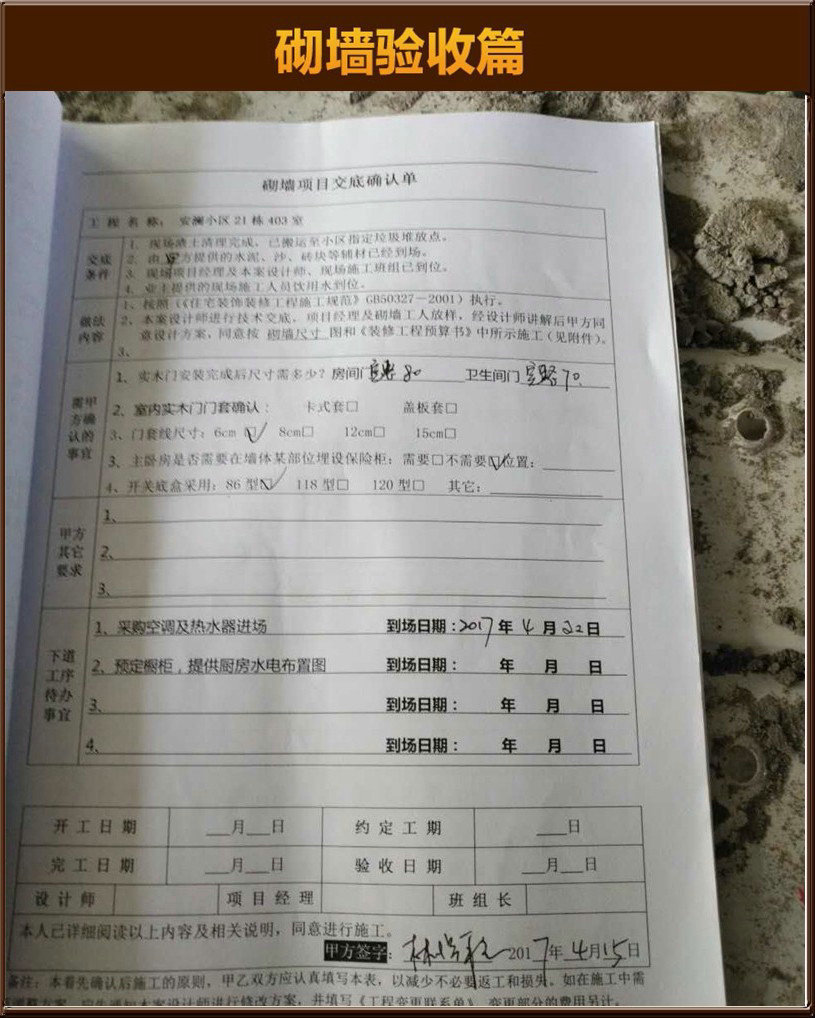 砌墙验收篇
砌墙项目交底确认单
工程名称： 安澜小区21栋403室
交底条件
1、现场渣土清理完成，已搬运至小区指定垃圾堆放点。
2、由 方提供的水泥、沙、砖块等辅材已经到场。
3、现场项目经理及本案设计师、现场施工班组已到位。
4、业主提供的现场施工人员饮用水到位。
做法内容
1、按照《《住宅装饰装修工程施工规范》GB50327-2001）执行。
2、本案设计师进行技术交底，项目经理及砌墙工人放样，经设计师讲解后甲方同
意设计方案，同意按 砌墙尺寸 图和《装修工程预算书》中所示施工（见附件）。
3、
需甲方确认的事宜
1、实木门安装完成后尺寸需多少？房间门 80 卫生间门 70
2、室内实木门门套确认： 卡式套□ 盖板套□
3、门套线尺寸：6cm☑ 8cm□ 12cm□ 15cm□
3、主卧房是否需要在墙体某部位埋设保险柜：需要□不需要☑位置：
4、开关底盒采用：86型☑ 118型□ 120型□ 其它：
甲方其它要求
1、
2、
3、
下道工序待办事宜
1、采购空调及热水器进场 到场日期：2017年4月22日
2、预定橱柜，提供厨房水电布置图 到场日期： 年 月 日
3、 到场日期： 年 月 日
4、 到场日期： 年 月 日
开工日期 __月__日 约定工期 __日
完工日期 __月__日 验收日期 __月__日
设计师 项目经理 班组长
本人已详细阅读以上内容及相关说明，同意进行施工。
甲方签字： 2017年4月15日
备注：本着先确认后施工的原则，甲乙双方应认真填写本表，以减少不必要返工和损失。如在施工中需
方案，应先通知本案设计师进行修改方案，并填写《工程变更联系单》，变更部分的费用另计。